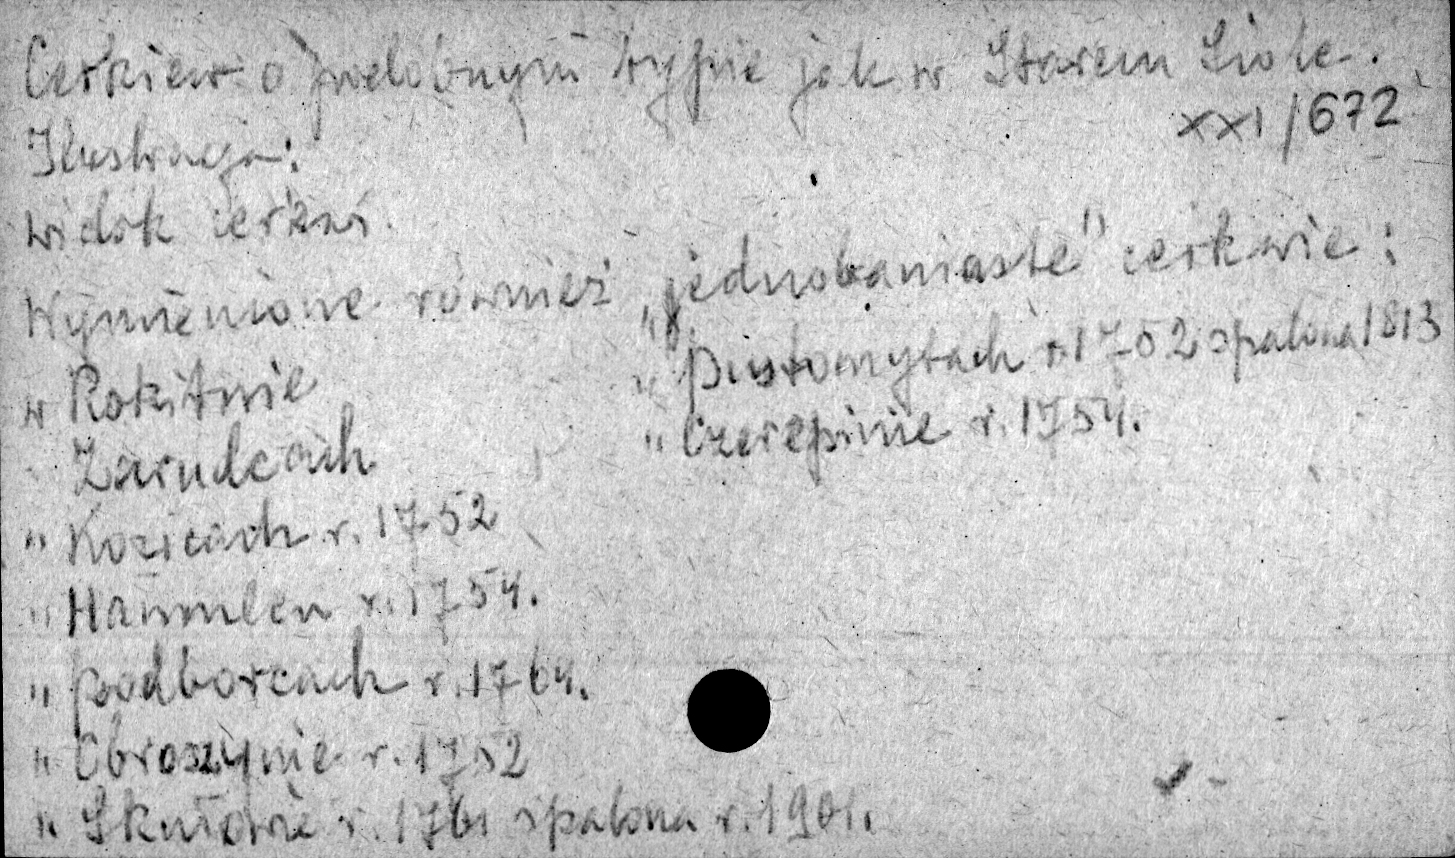 Cerkiew o podobnym typie jak w Starem Siole.
XXI/672
Ilustracja:
widok cerkwi.
Wymienione również „jednobaniaste" cerkwie:
w Rokitnie
Zarudcach
" Kozicach r. 1752
" Hammlen r. 1754.
" Podborcach r. 1764.
" Obroszynie r. 1752
" Skniłowie r. 1761 spalona r. 1901.
" Pustomytach r. 1752 spalona 1813
" Czerepinie r. 1754.